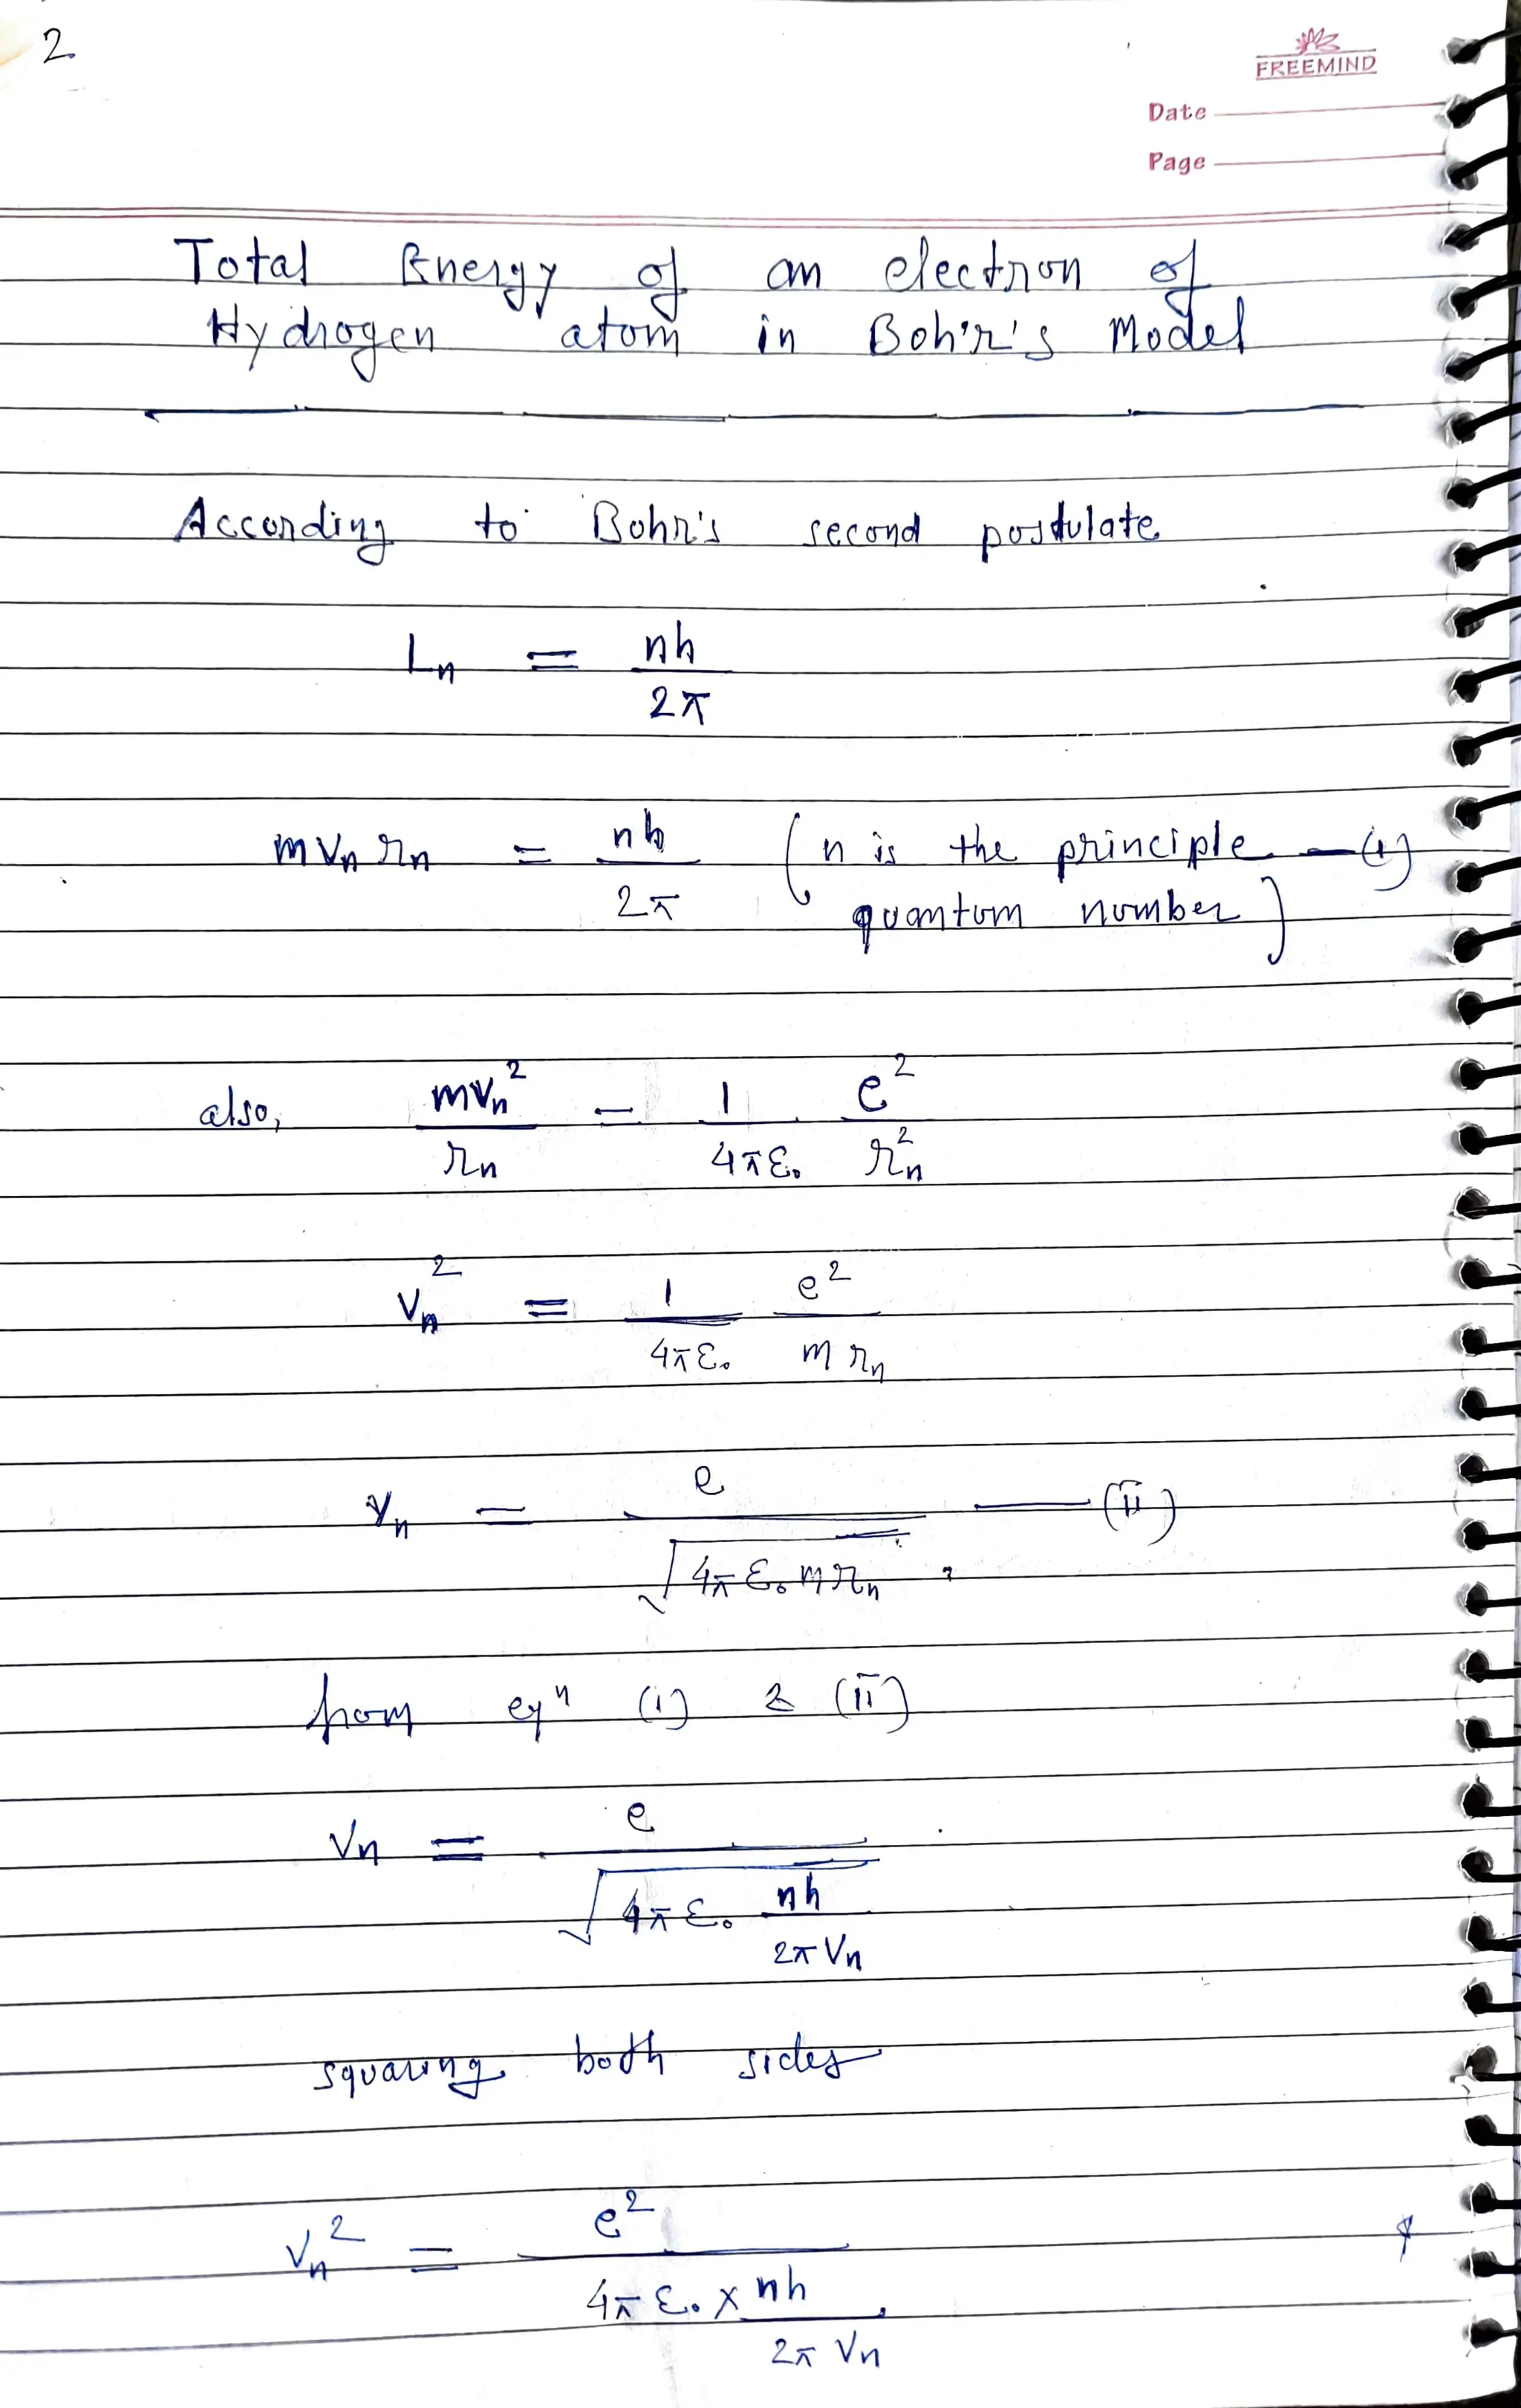 2
FREEMIND
Date
Page
Total Energy of an electron of
Hydrogen atom in Bohr's Model
According to Bohr's second postulate
Lₙ = nh / 2π
mvₙ rₙ = nh / 2π (n is the principle —(i)
quantum number)
also, mvₙ² / rₙ = 1 / 4πε₀ e² / rₙ²
vₙ² = 1 / 4πε₀ e² / m rₙ
vₙ = e / √(4πε₀ m rₙ) —(ii)
from eqⁿ (i) & (ii)
vₙ = e / √(4πε₀ nh / 2πvₙ)
squaring both sides
vₙ² = e² / 4πε₀ × nh / 2πvₙ